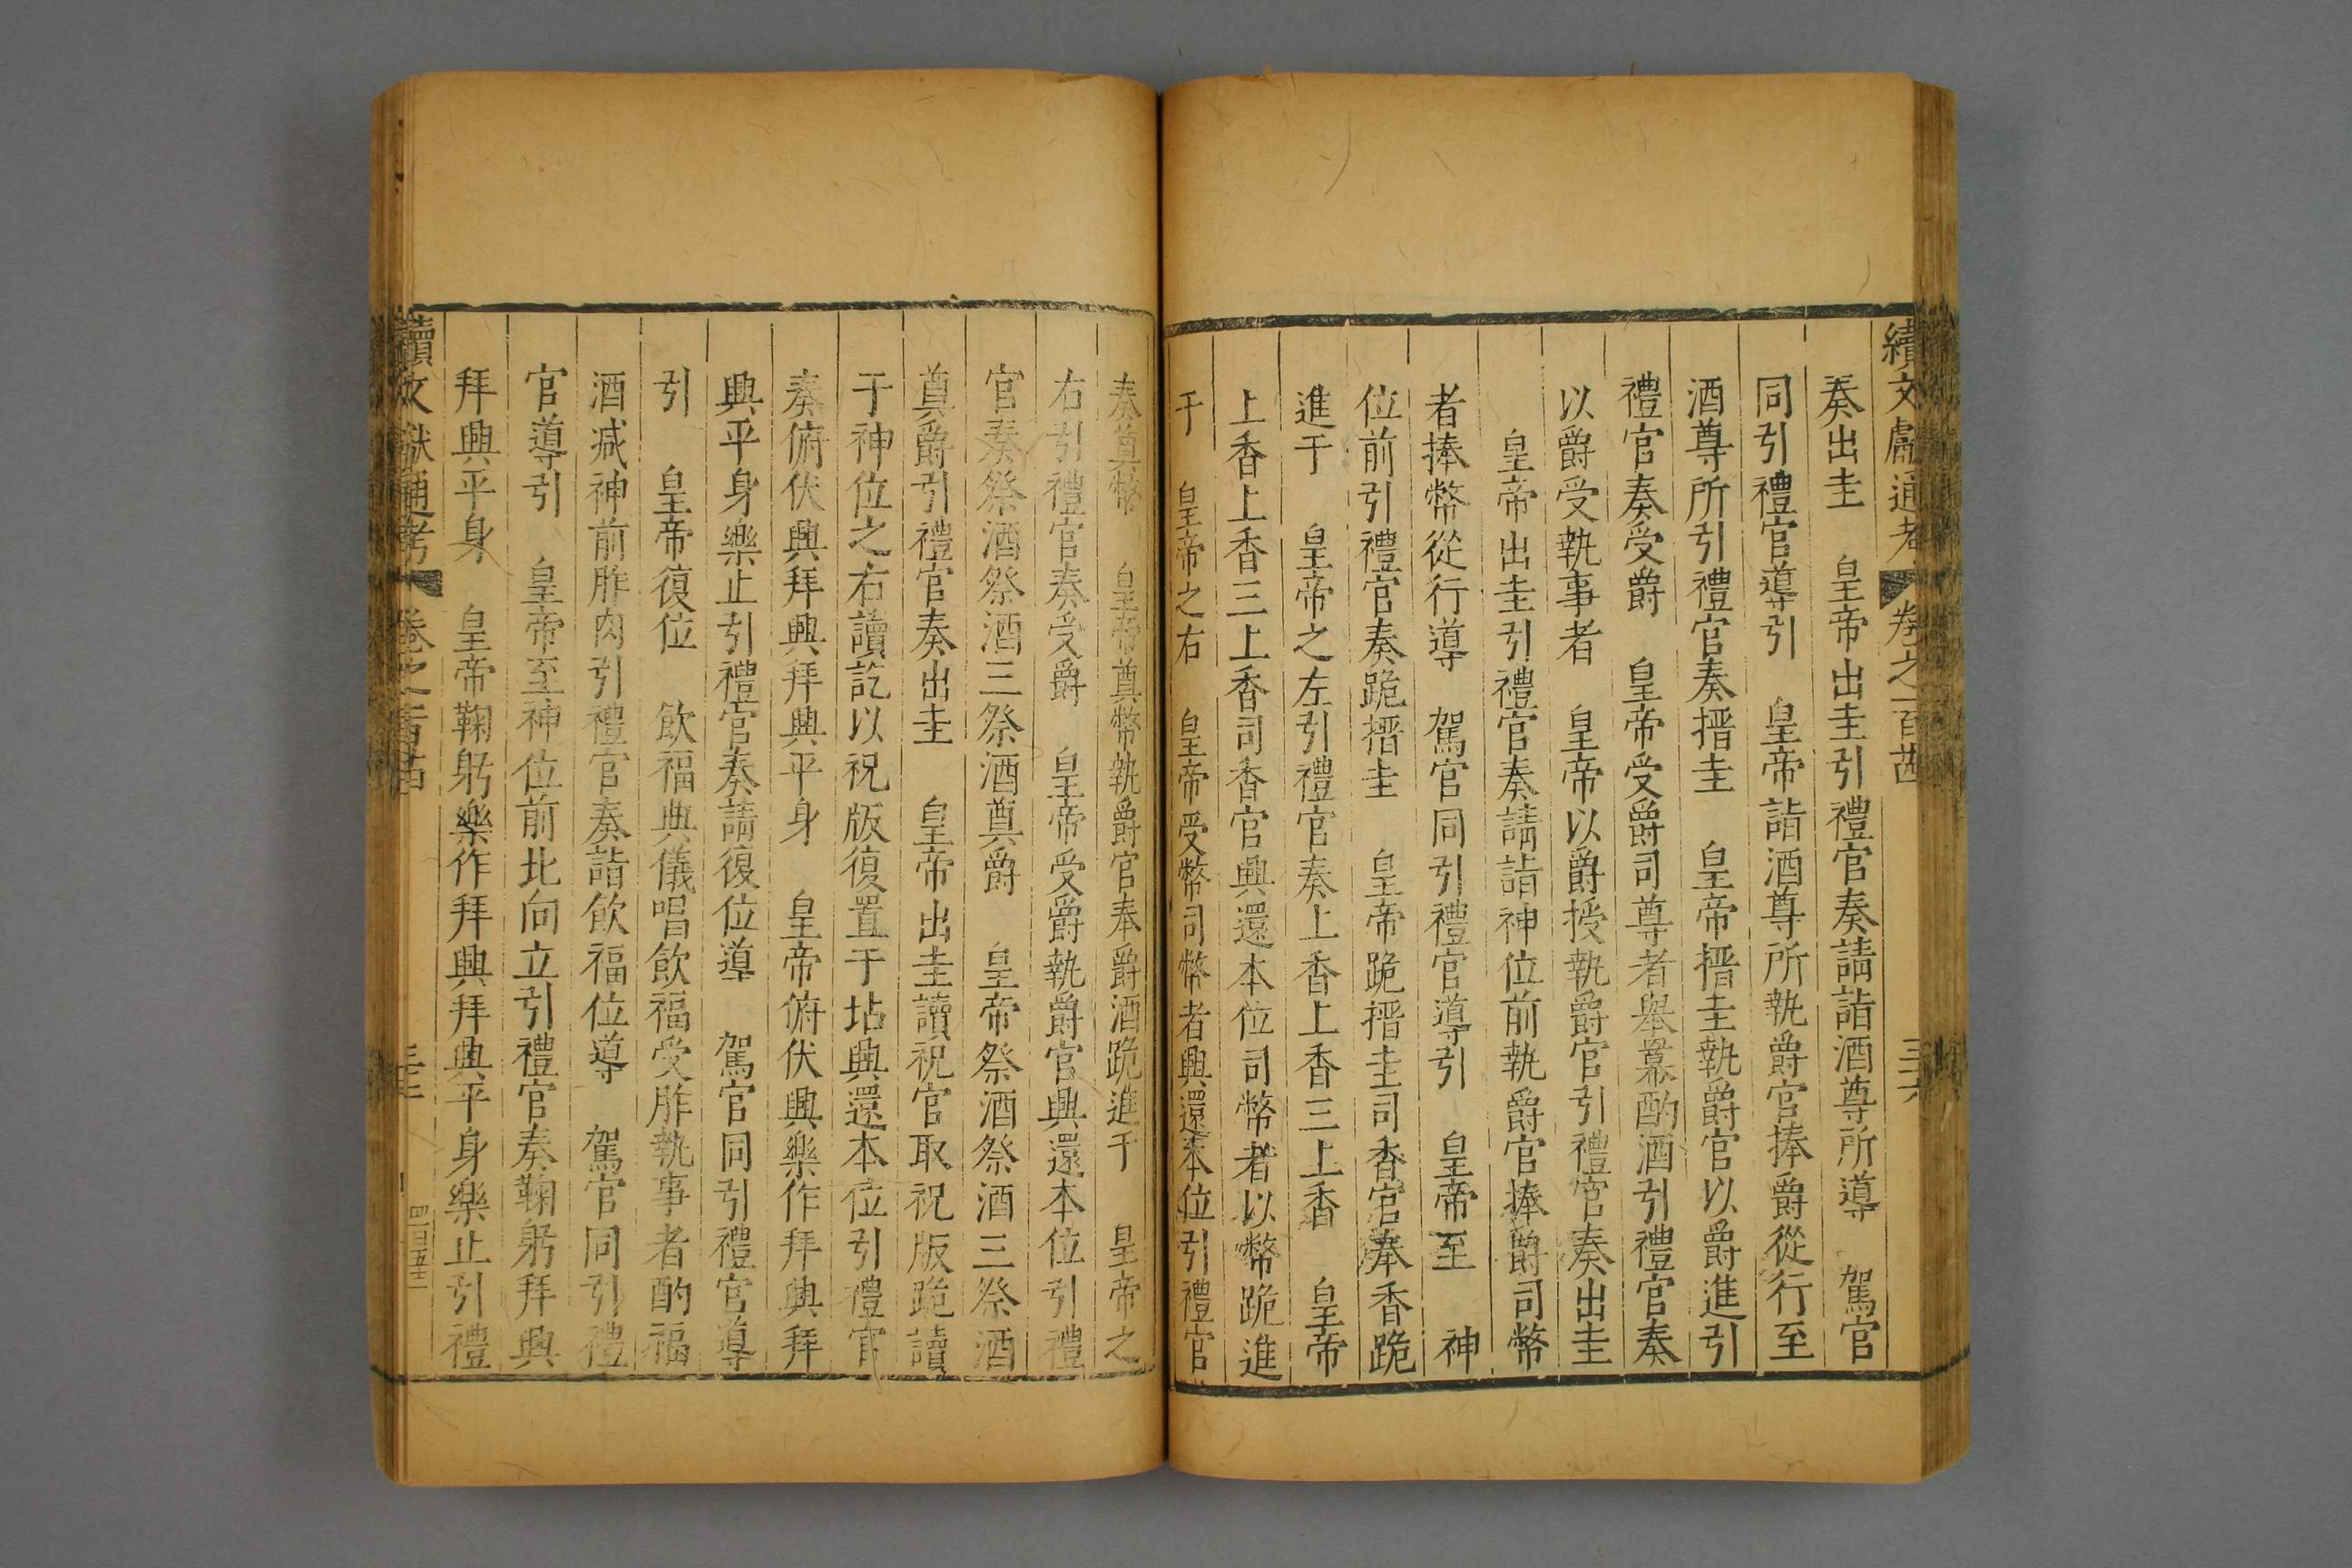 續文獻通考 卷之一百十四 三十六
奏出圭 皇帝出圭引禮官奏請詣酒尊所導 駕官
同引禮官導引 皇帝詣酒尊所執爵官捧爵從行至
酒尊所引禮官奏搢圭 皇帝搢圭執爵官以爵進引
禮官奏受爵 皇帝受爵司尊者舉羃酌酒引禮官奏
以爵受執事者 皇帝以爵授執爵官引禮官奏出圭
皇帝出圭引禮官奏請詣神位前執爵官捧爵司幣
者捧幣從行導 駕官同引禮官導引 皇帝至 神
位前引禮官奏跪搢圭 皇帝跪搢圭司香官奉香跪
進于 皇帝之左引禮官奏上香上香三上香 皇帝
上香上香三上香司香官興還本位司幣者以幣跪進
于 皇帝之右 皇帝受幣司幣者興還本位引禮官
奏奠幣 皇帝奠幣執爵官奉爵酒跪進于 皇帝之
右引禮官奏受爵 皇帝受爵執爵官興還本位引禮
官奏祭酒祭酒三祭酒奠爵 皇帝祭酒祭酒三祭酒
奠爵引禮官奏出圭 皇帝出圭讀祝官取祝版跪讀
于神位之右讀訖以祝版復置于坫興還本位引禮官
奏俯伏興拜興拜興平身 皇帝俯伏興樂作拜興拜
興平身樂止引禮官奏請復位導 駕官同引禮官導
引 皇帝復位 飲福典儀唱飲福受胙執事者酌福
酒減神前胙肉引禮官奏詣飲福位導 駕官同引禮
官導引 皇帝至神位前北向立引禮官奏鞠躬拜興
拜興平身 皇帝鞠躬樂作拜興拜興平身樂止引禮
續文獻通考 卷之一百十四